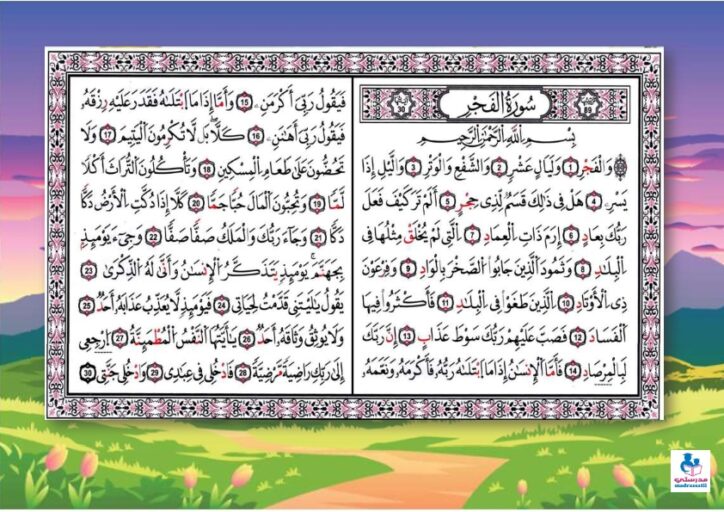 سُورَةُ الفَجْرِ
89
30
بِسْمِ اللَّهِ الرَّحْمَٰنِ الرَّحِيمِ
وَالْفَجْرِ 1 وَلَيَالٍ عَشْرٍ 2 وَالشَّفْعِ وَالْوَتْرِ 3 وَالَّيْلِ إِذَا
يَسْرِۦ 4 هَلْ فِي ذَٰلِكَ قَسَمٌ لِّذِي حِجْرٍ 5 أَلَمْ تَرَ كَيْفَ فَعَلَ
رَبُّكَ بِعَادٍ 6 إِرَمَ ذَاتِ الْعِمَادِ 7 الَّتِي لَمْ يُخْلَقْ مِثْلُهَا فِي
الْبِلَٰدِ 8 وَثَمُودَ الَّذِينَ جَابُوا الصَّخْرَ بِالْوَادِ 9 وَفِرْعَوْنَ
ذِي الْأَوْتَادِ 10 الَّذِينَ طَغَوْا فِي الْبِلَٰدِ 11 فَأَكْثَرُوا فِيهَا
الْفَسَادَ 12 فَصَبَّ عَلَيْهِمْ رَبُّكَ سَوْطَ عَذَابٍ 13 إِنَّ رَبَّكَ
لَبِالْمِرْصَادِ 14 فَأَمَّا الْإِنسَٰنُ إِذَا مَا ابْتَلَىٰهُ رَبُّهُ فَأَكْرَمَهُ وَنَعَّمَهُ
فَيَقُولُ رَبِّيَ أَكْرَمَنِۦ 15 وَأَمَّا إِذَا مَا ابْتَلَىٰهُ فَقَدَرَ عَلَيْهِ رِزْقَهُ
فَيَقُولُ رَبِّيَ أَهَٰنَنِۦ 16 كَلَّا بَل لَّا تُكْرِمُونَ الْيَتِيمَ 17 وَلَا
تَحُضُّونَ عَلَىٰ طَعَامِ الْمِسْكِينِ 18 وَتَأْكُلُونَ التُّرَاثَ أَكْلًا
لَّمًّا 19 وَتُحِبُّونَ الْمَالَ حُبًّا جَمًّا 20 كَلَّا إِذَا دُكَّتِ الْأَرْضُ دَكًّا
دَكًّا 21 وَجَاءَ رَبُّكَ وَالْمَلَكُ صَفًّا صَفًّا 22 وَجِيءَ يَوْمَئِذٍ
بِجَهَنَّمَ يَوْمَئِذٍ يَتَذَكَّرُ الْإِنسَٰنُ وَأَنَّىٰ لَهُ الذِّكْرَىٰ 23
يَقُولُ يَٰلَيْتَنِي قَدَّمْتُ لِحَيَاتِي 24 فَيَوْمَئِذٍ لَّا يُعَذِّبُ عَذَابَهُ أَحَدٌ 25
وَلَا يُوثِقُ وَثَاقَهُ أَحَدٌ 26 يَٰأَيَّتُهَا النَّفْسُ الْمُطْمَئِنَّةُ 27 ارْجِعِي
إِلَىٰ رَبِّكِ رَاضِيَةً مَّرْضِيَّةً 28 فَادْخُلِي فِي عِبَٰدِي 29 وَادْخُلِي جَنَّتِي 30
مدرستي